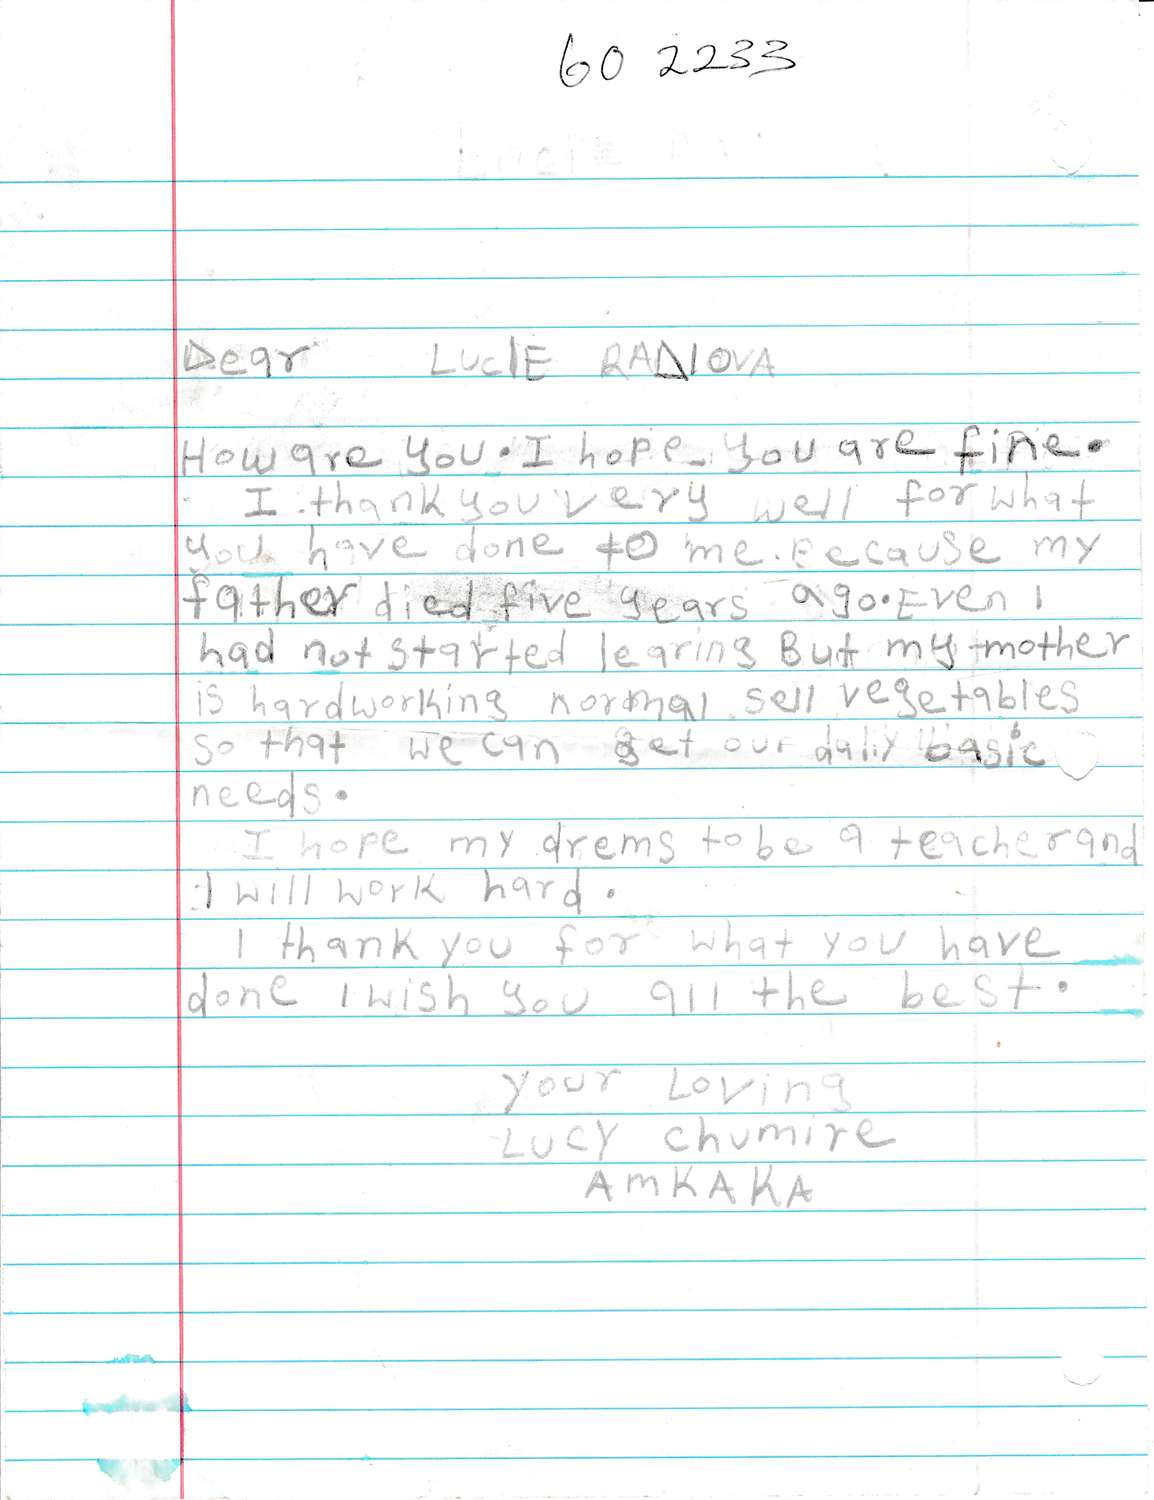 60 2233
Dear LUCIE RANOVA
How are you. I hope you are fine.
I thank you very well for what
you have done to me. Because my
father died five years ago. Even I
had not started learing But my mother
is hardworking normal sell vegetables
so that we can get our daliy basic
needs.
I hope my drems to be a teacher and
I will work hard.
I thank you for what you have
done I wish you all the best.
your Loving
LUCY Chumire
AMKAKA